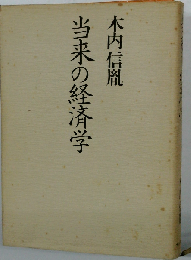 木内信胤
当来の経済学